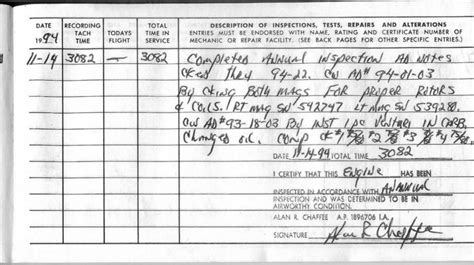 DATE 1994 RECORDING TACH TIME TODAYS FLIGHT TOTAL TIME IN SERVICE DESCRIPTION OF INSPECTIONS, TESTS, REPAIRS AND ALTERATIONS
ENTRIES MUST BE ENDORSED WITH NAME, RATING AND CERTIFICATE NUMBER OF
MECHANIC OR REPAIR FACILITY. (SEE BACK PAGES FOR OTHER SPECIFIC ENTRIES.)
11-14 3082 — 3082 Completed Annual Inspection AD Notes
cked thru 94-22. CW AD# 94-01-03
By cking Both mags For proper Rotors
& Coils. RT mag SN 542247 LT mag SN 539280.
CW AD# 93-18-03 By INST 1 pc Venturi in CARB.
Changed oil. Comp ck #1 #2 #3 #4
DATE 11-14-94 TOTAL TIME 3082
I CERTIFY THAT THIS Engine HAS BEEN
INSPECTED IN ACCORDANCE WITH AN Annual
INSPECTION AND WAS DETERMINED TO BE IN
AIRWORTHY CONDITION.
ALAN R. CHAFFEE A.P. 1896706 I.A.
SIGNATURE Alan R Chaffee